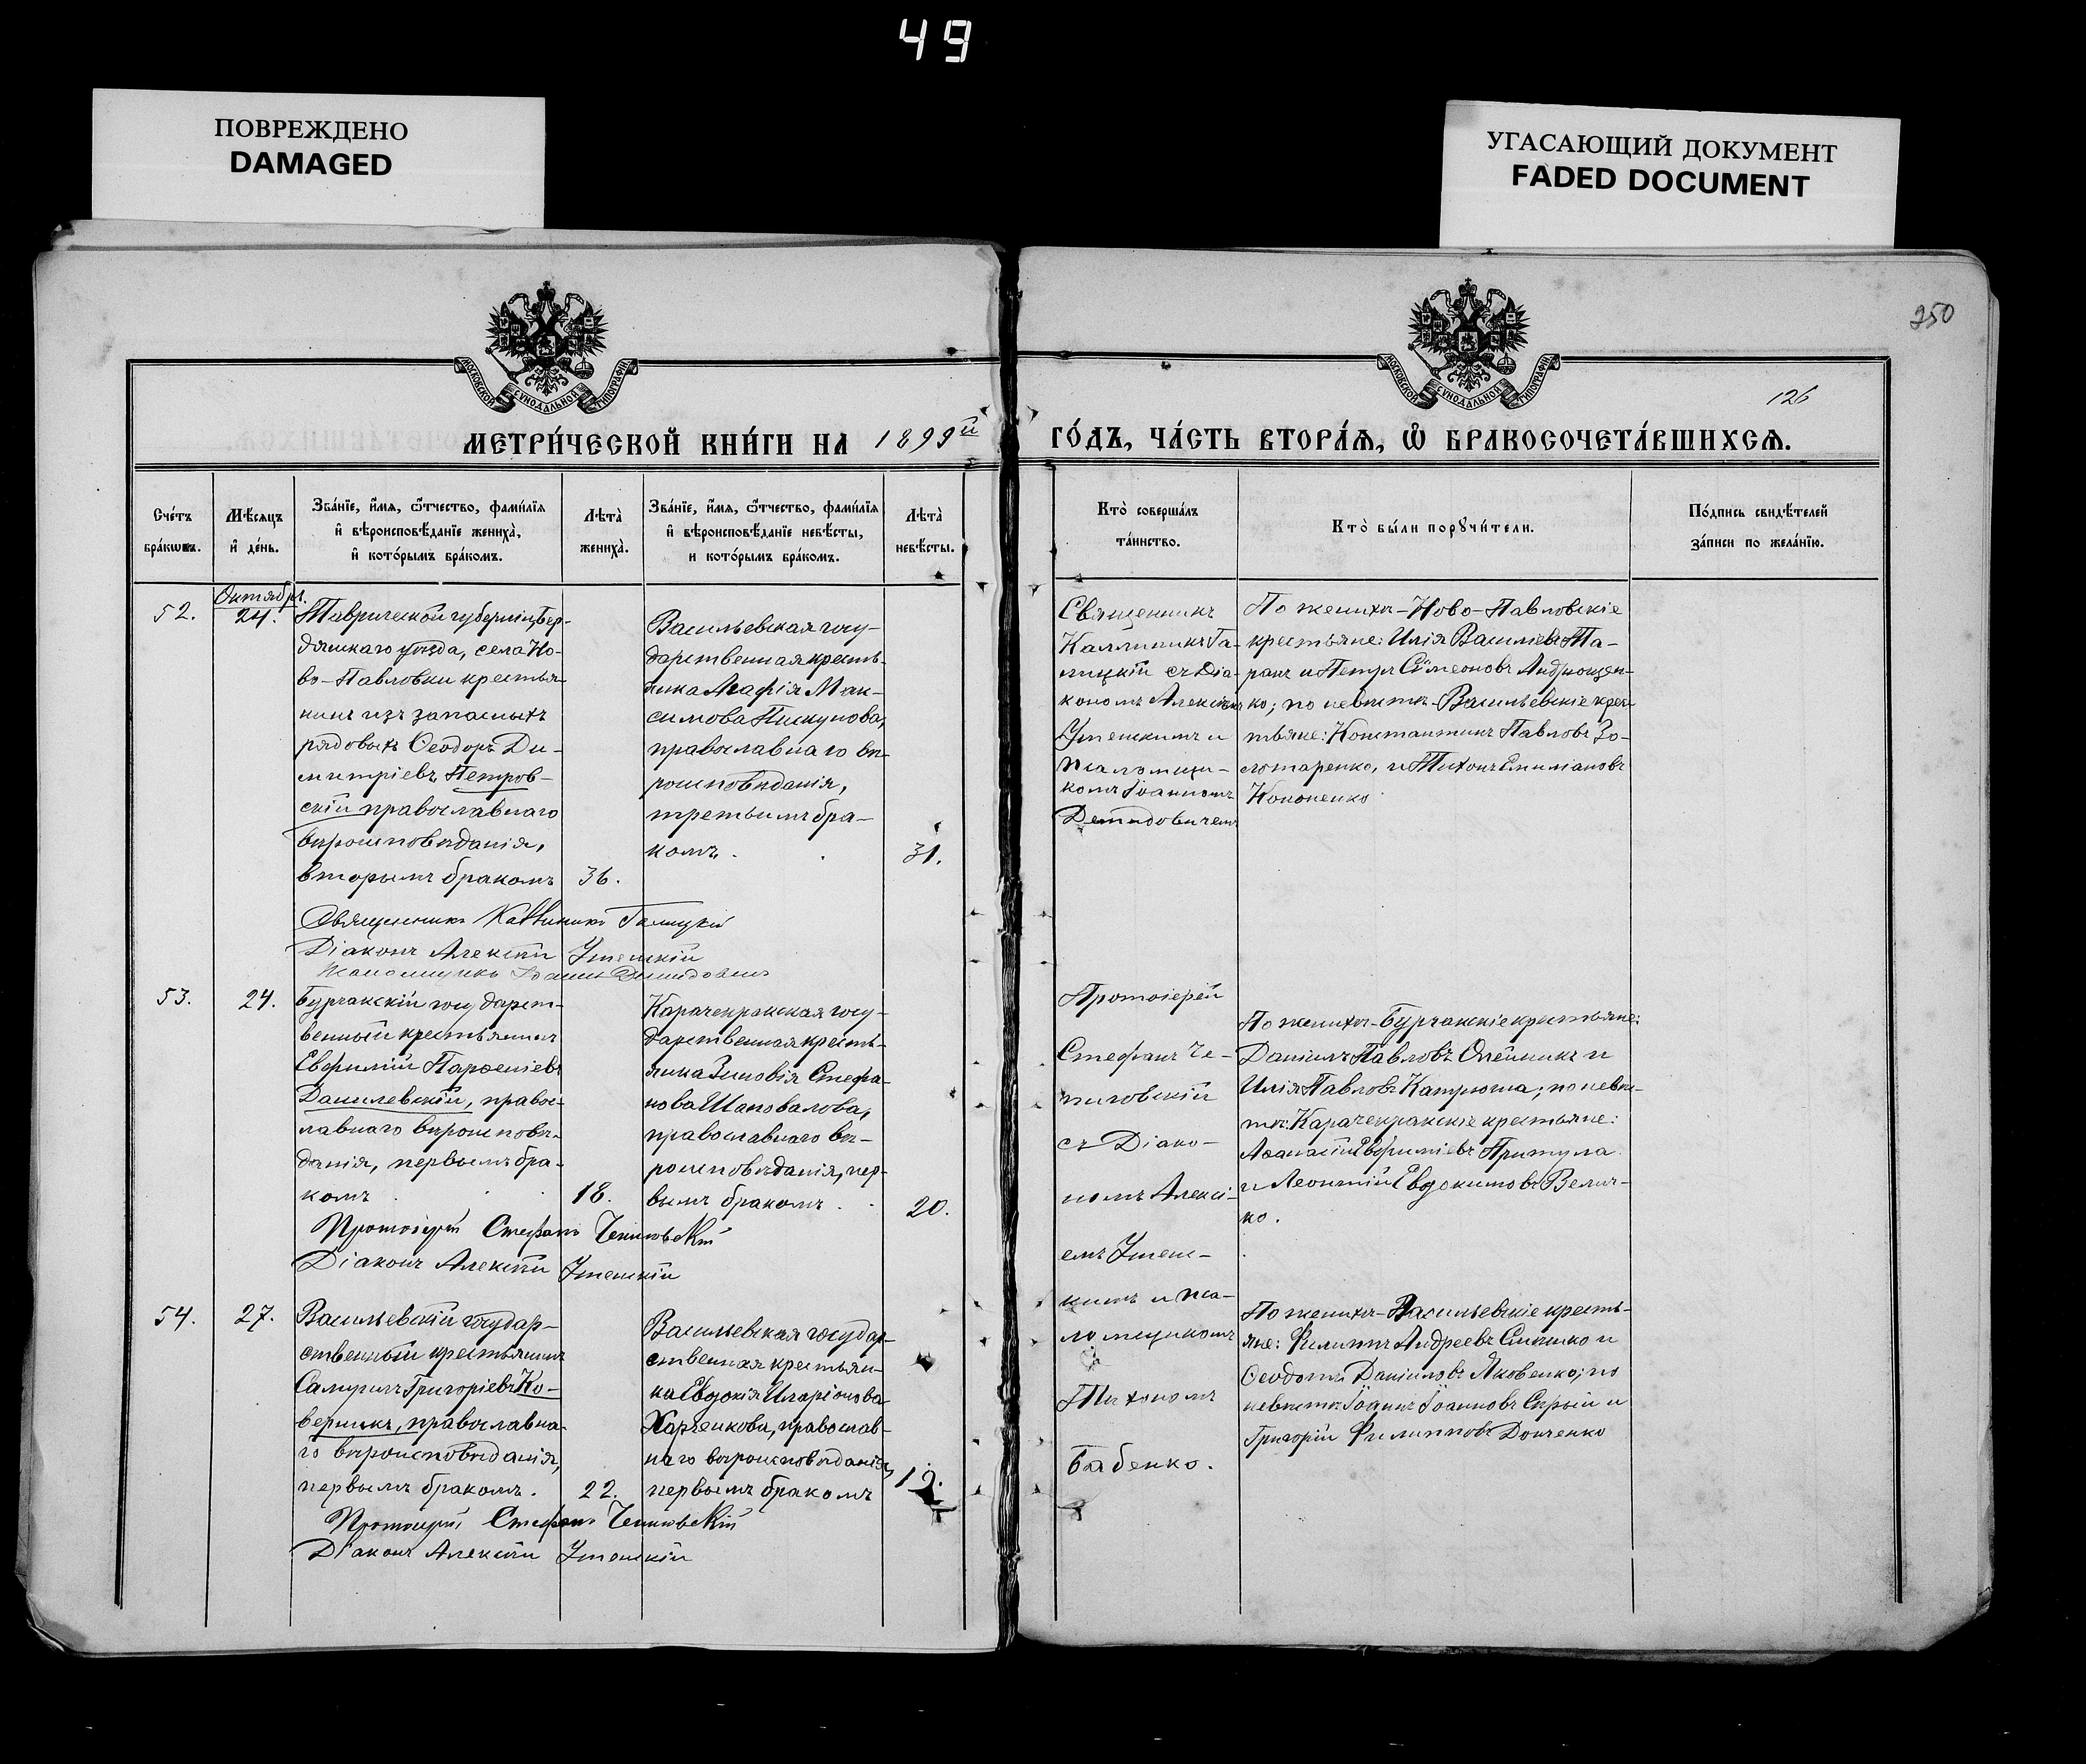 49
ПОВРЕЖДЕНО
DAMAGED
УГАСАЮЩИЙ ДОКУМЕНТ
FADED DOCUMENT
250
126
МОСКОВСКОЙ СѴНОДАЛЬНОЙ ТИПОГРАФІИ
МОСКОВСКОЙ СѴНОДАЛЬНОЙ ТИПОГРАФІИ
МЕТРИ́ЧЕСКОЙ КНИ́ГИ НА 1899й
ГО́ДЪ, ЧА́СТЬ ВТОРА́Ѧ, Ѡ҆ БРАКОСОЧЕТА́ВШИХСѦ.
Сче́тъ
бра́кѡвъ.
Мѣ́сѧцъ
и҆ де́нь.
Зва́нїе, и҆́мѧ, ѻ҆́тчество, фами́лїѧ
и҆ вѣроисповѣ́данїе жениха̀,
и҆ кото́рымъ бра́комъ.
Лѣта̀
жениха̀.
Зва́нїе, и҆́мѧ, ѻ҆́тчество, фами́лїѧ
и҆ вѣроисповѣ́данїе невѣ́сты,
и кото́рымъ бра́комъ.
Лѣта̀
невѣ́сты.
Кто̀ соверша́лъ
та́инство.
Кто̀ бы́ли порꙋчи́тели.
По́дпись свидѣ́телей
за́писи по жела́нїю.
52.
Октябрь.
24.
Таврической губерніи, Бер-
дянскаго уѣзда, села Но-
во-Павловки крестья-
нинъ изъ запасныхъ
рядовыхъ Ѳеодоръ Ди-
митріевъ Петров-
скій православнаго
вѣроисповѣданія,
вторымъ бракомъ
36.
Васильевская госу-
дарственная кресть-
янка Агафія Мак-
симова Пискунова,
православнаго вѣ-
роисповѣданія,
третьимъ бра-
комъ.
31.
Священникъ
Каллиникъ Га-
лицкій съ Діа-
кономъ Алексіемъ
Утенскимъ и
псаломщи-
комъ Іоанномъ
Демидовичемъ
По женихѣ - Ново-Павловскіе
крестьяне: Илія Васильевъ Та-
ранъ и Петръ Сѵмеоновъ Андрющен-
ко; по невѣстѣ - Васильевскіе крес-
тьяне: Константинъ Павловъ Зо-
лотаренко, и Тихонъ Емиліановъ
Кононенко
Священникъ Каллиникъ Галицкій
Діаконъ Алексѣй Утенскій
Псаломщикъ Іоаннъ Демидовичъ
53.
24.
Бурчакскій государст-
венный крестьянинъ
Евфимій Парѳеніевъ
Данилевскій, правос-
лавнаго вѣроисповѣ-
данія, первымъ бра-
комъ
18.
Карачекракская госу-
дарственная кресть-
янка Зиновія Стефа-
нова Шаповалова,
православнаго вѣ-
роисповѣданія, пер-
вымъ бракомъ.
20.
Протоіерей
Стефанъ Че-
пиговскій
съ Діако-
номъ Алексі-
емъ Утенс-
кимъ и пса-
ломщикомъ
Тихономъ
Бабенко.
По женихѣ - Бурчакскіе крестьяне:
Даніилъ Павловъ Олейникъ и
Илія Павловъ Катрюша; по невѣс-
тѣ: Карачекракскіе крестьяне:
Аѳанасій Евфиміевъ Притула
и Леонтій Евдокимовъ Велич-
ко.
Протоіерей Стефанъ Чепиговскій
Діаконъ Алексѣй Утенскій
54.
27.
Васильевскій государ-
ственный крестьянинъ
Сампсонъ Григоріевъ Ко-
верникъ, православна-
го вѣроисповѣданія,
первымъ бракомъ.
22.
Васильевская государ-
ственная крестьян-
ка Евдокія Иларіонова
Харченкова, православ-
наго вѣроисповѣданія,
первымъ бракомъ
19.
По женихѣ - Васильевскіе кресть-
яне: Филиппъ Андреевъ Синько и
Ѳеодотъ Даніиловъ Яковенко; по
невѣстѣ Іоаннъ Іоанновъ Сѣрый и
Григорій Филипповъ Донченко
Протоіерей Стефанъ Чепиговскій
Діаконъ Алексѣй Утенскій